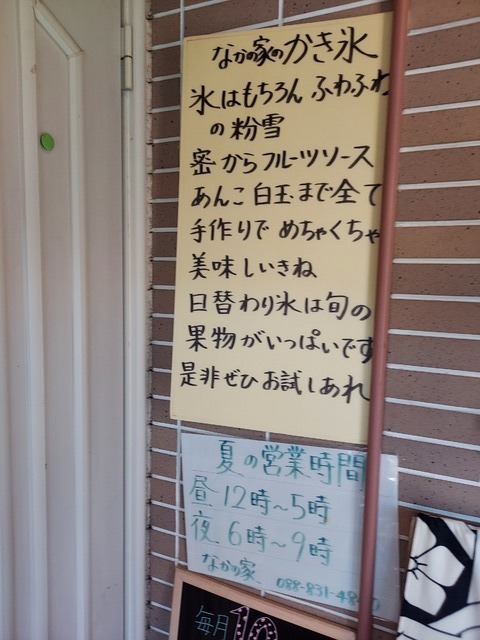 なかの家のかき氷
氷はもちろん ふわふわ
の粉雪
密からフルーツソース
あんこ 白玉まで全て
手作りで めちゃくちゃ
美味しいきね
日替わり氷は旬の
果物がいっぱいです
是非ぜひ お試しあれ
夏の営業時間
昼 12時~5時
夜 6時~9時
なかの家 088-831-48
毎月